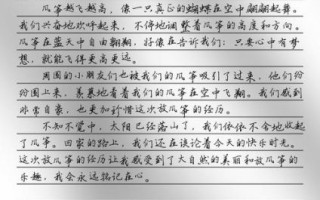 风筝越飞越高，像一只真正的蝴蝶在空中翩翩起舞。
我们兴奋地欢呼起来，不停地调整着风筝的高度和方向。
风筝在蓝天中自由翱翔，好像在告诉我们：只要心中有梦
想，就能飞得更高更远。
周围的小朋友们也被我们的风筝吸引了过来，他们纷
纷围上来，羡慕地看着我们的风筝在空中飞翔。我们感到
非常自豪，也更加珍惜这次放风筝的经历。
不知不觉中，太阳已经落山了，我们依依不舍地收起
了风筝。回家的路上，我们还在谈论着今天的快乐时光。
这次放风筝的经历让我感受到了大自然的美丽和放风筝的
乐趣，我会永远铭记在心。